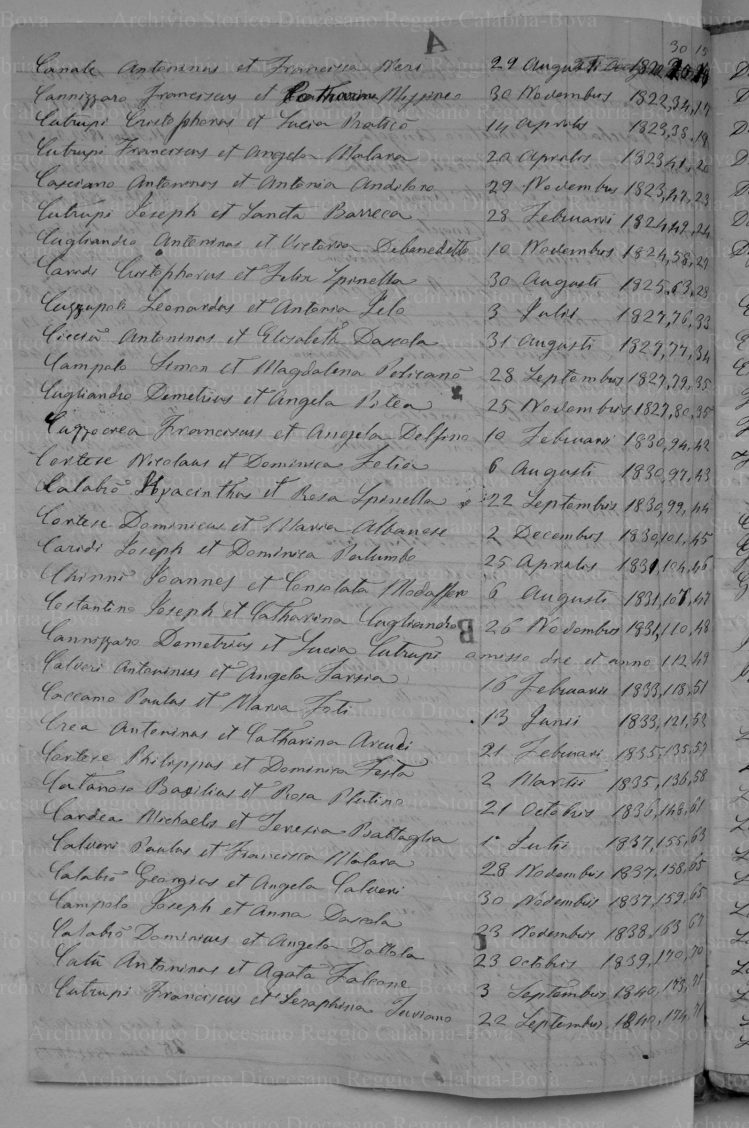 A
30 15
Canale Antoninus et Francisca Neri 29 Augusti
Cannizzaro Franciscus et Catharina Messineo 30 Novembris 1822, 34, 17
Cutrupi Cristophorus et Lucia Praticò 14 Aprilis 1823, 38, 19
Cutrupi Franciscus et Angela Malara 20 Aprilis 1823, 41, 20
Casciano Antoninus et Antonia Andiloro 29 Novembris 1823, 47, 23
Cutrupi Joseph et Sancta Barreca 28 Februarii 1824, 49, 24
Cugliandro Antoninus et Victoria Debenedetto 10 Novembris 1824, 58, 29
Caridi Cristophorus et Felix Spinella 30 Augusti 1825, 63, 28
Cuzzupoli Leonardus et Antonia Pelo 3 Julii 1827, 76, 33
Ciccia Antoninus et Elisabeth Dascola 31 Augusti 1827, 77, 34
Campolo Simon et Magdalena Policanò 28 Septembris 1827, 79, 35
Cugliandro Demetrius et Angela Pitea 25 Novembris 1827, 80, 35
Cuzzocrea Franciscus et Angela Delfino 10 Februarii 1830, 94, 42
Cortese Nicolaus et Dominica Fotia 6 Augusti 1830, 97, 43
Calabrò Hyacinthus et Rosa Spinella 22 Septembris 1830, 99, 44
Cortese Dominicus et Maria Albanese 2 Decembris 1830, 101, 45
Caridi Joseph et Dominica Palumbo 25 Aprilis 1831, 104, 46
Chinnì Joannes et Consolata Modafferi 6 Augusti 1831, 107, 47
Costantino Joseph et Catharina Cugliandro 26 Novembris 1831, 110, 48
B
Cannizzaro Demetrius et Lucia Cutrupi omisso die et anno 112, 49
Calveri Antoninus et Angela Tarsia 16 Februarii 1833, 118, 51
Caccamo Paulus et Maria Foti 13 Junii 1833, 121, 53
Crea Antoninus et Catharina Arcudi 21 Februari 1835, 135, 57
Cortese Philippus et Dominica Festa 2 Martii 1835, 136, 58
Catanoso Basilius et Rosa Plutino 21 Octobris 1836, 148, 61
Cardea Michaelis et Teresia Battaglia 1° Julii 1837, 155, 63
Calveri Paulus et Francisca Malara 28 Novembris 1837, 158, 65
Calabrò Georgius et Angela Calveri 30 Novembris 1837, 159, 65
Campolo Joseph et Anna Dascola 23 Novembris 1838, 163, 67
Calabrò Dominicus et Angela Dattola 23 Octobris 1839, 170, 70
Catù Antoninus et Agata Falcone 3 Septembris 1840, 173, 71
Cutrupi Franciscus et Seraphina Surano 22 Septembris 1840, 174, 71